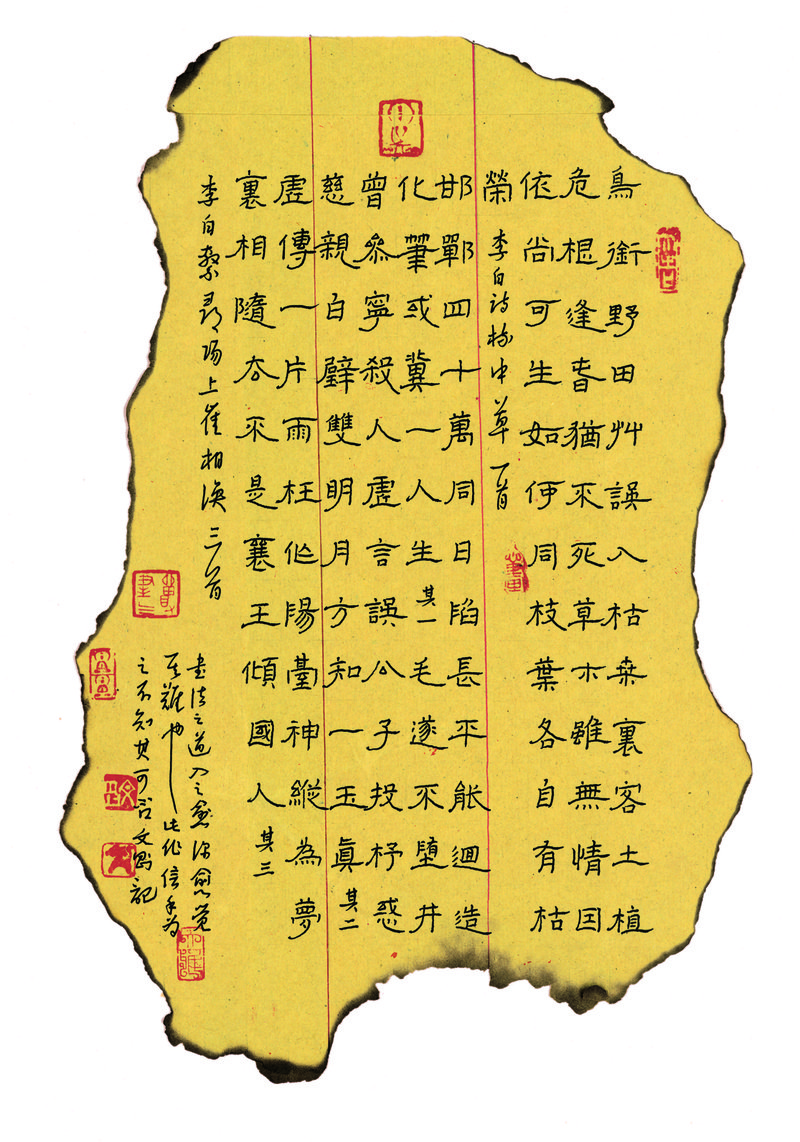 鳥銜野田艸誤入枯桒裏客土植
危根逢春猶不死草木雖無情因
依尚可生如何同枝葉各自有枯
榮 李白詩樹中草一首
邯鄲四十萬同日陷長平能迴造
化筆或冀一人生 其一 毛遂不墮井
曾參寧殺人虛言誤公子投杼惑
慈親白璧雙明月方知一玉眞 其二
虛傳一片雨枉作陽臺神縱為夢
裏相隨去不是襄王傾國人 其三
李白繫尋陽上崔相渙三首
書法之道入之愈深愈覺
其難也此作信手為
之不知其可否文記